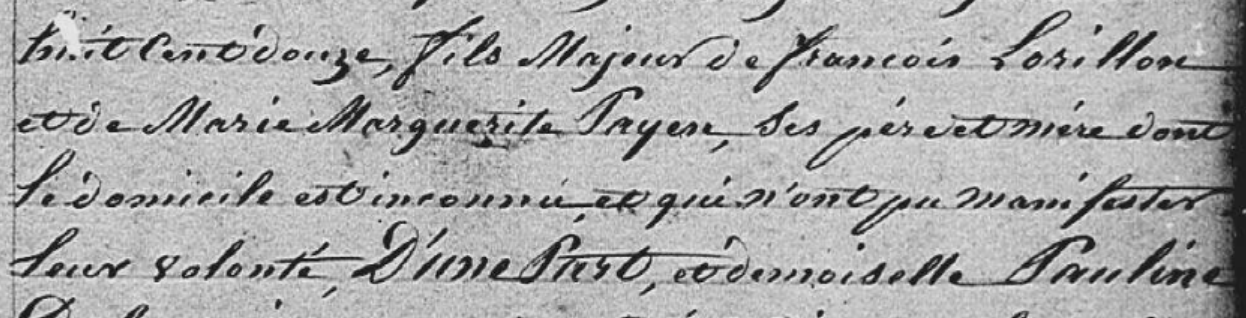 huit cent douze, fils Majeur de françois Lorillon
et de Marie Marguerite Payen, Ses père et mère dont
le domicile est inconnu, et qui n'ont pu manifester
leur volonté, D'une Part, et demoiselle Pauline